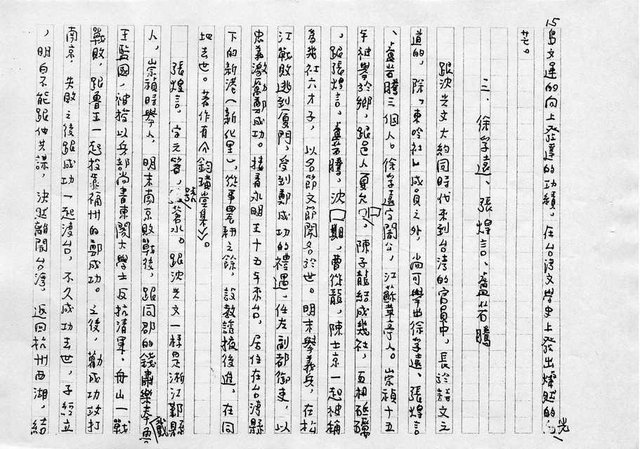 15
島文運的向上發達的功績，在台灣文學史上發出燦然的光
芒。
三、徐孚遠、張煌言、盧若騰
跟沈光文大約同時代來到台灣的官員中，長於詩文之
道的，除「東吟社」成員之外，尚可舉出徐孚遠、張煌言
、盧若騰三個人。徐孚遠字闇公，江蘇華亭人。崇禎十五
年被舉於鄉，跟邑人夏允、陳子龍結成幾社，互相砥礪
，跟張煌言、盧若騰，沈期，曹從龍，陳士京一起被稱
為幾社六才子，以名節文章聞名於世。明末舉義兵，在松
江戰敗逃到廈門，受到鄭成功的禮遇，任左副都御史，以
忠義激勵鄭成功。接著永明王十五年來台，居住在台灣縣
下的新港（新化里），從事農耕之餘，設教講授後進，在同
地去世。著作有《釣璜堂集》。
張煌言，字元箸，號蒼水。跟沈光文一樣是浙江鄞縣
人，崇禎時舉人，明末南京敗戰後，跟同郡的錢肅樂奉戴魯
王監國，被授以兵部尚書東閣大學士反抗清軍。舟山一戰
戰敗，跟魯王一起投靠福州的鄭成功。之後，勸成功攻打
南京，失敗之後跟成功一起渡台，不久成功去世，子經立
，明白不能跟他共謀，決然離開台灣，返回杭州西湖，結